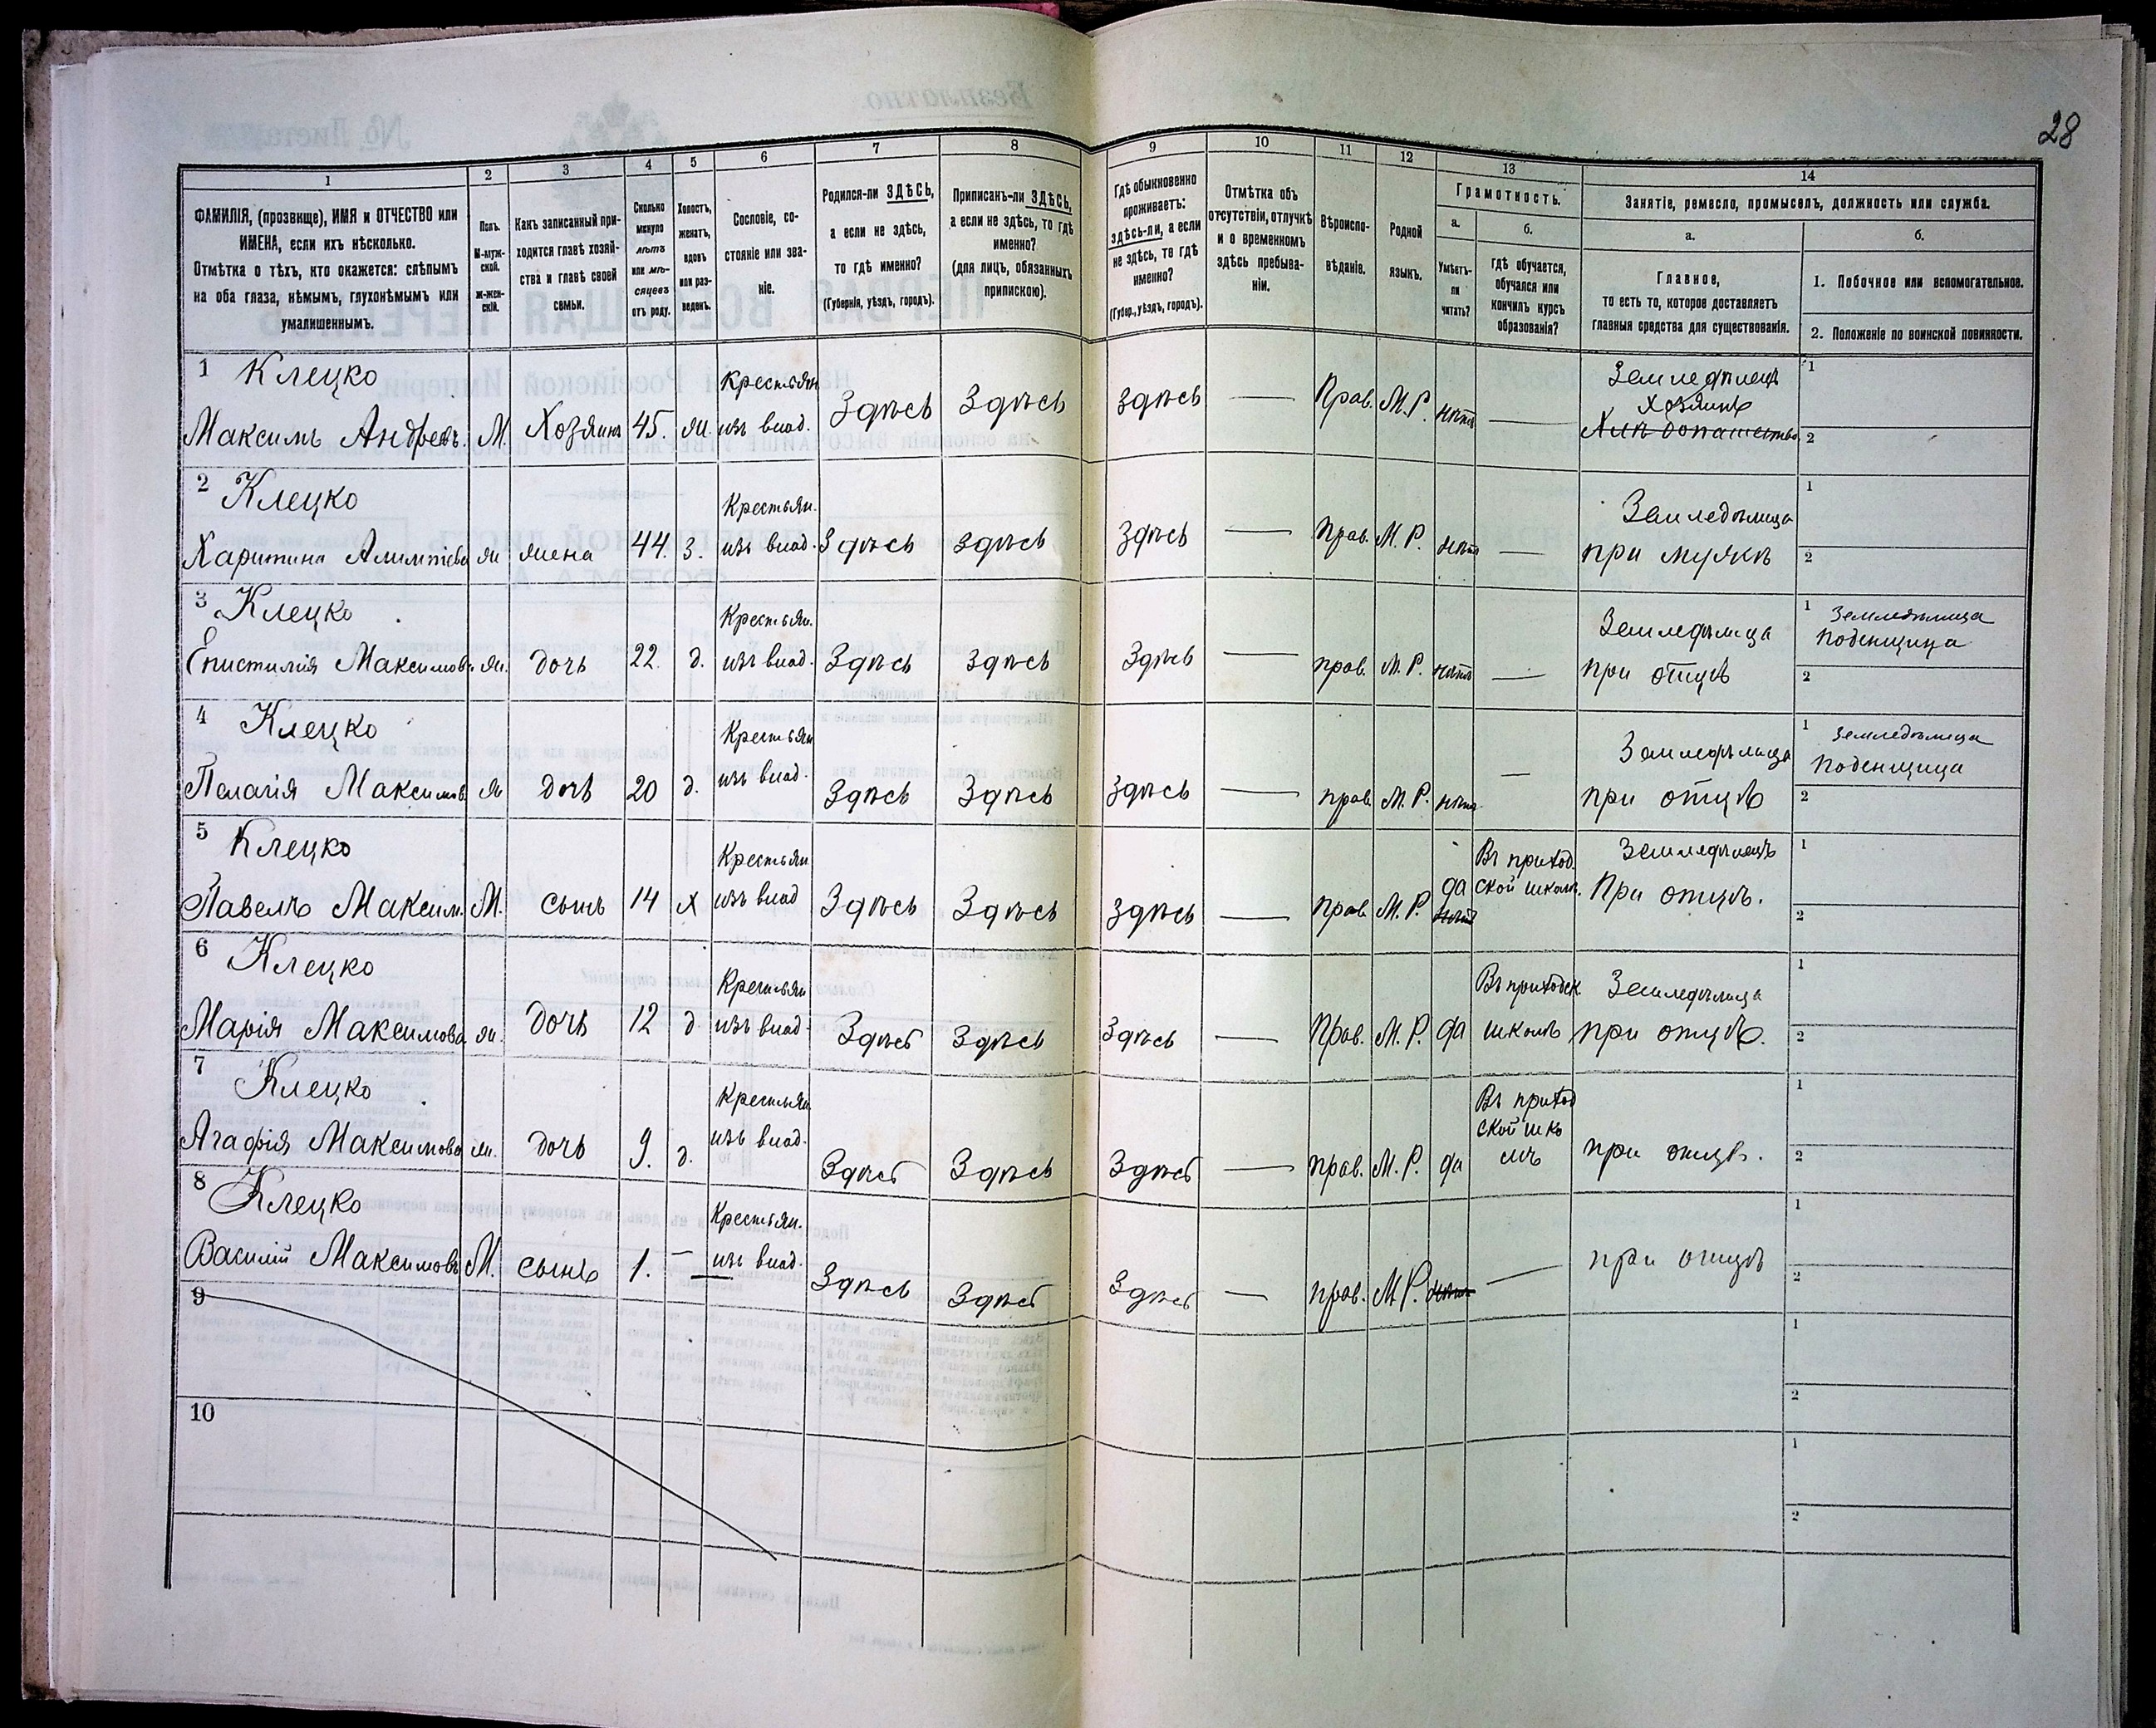 28
1 2 3 4 5 6 7 8 9 10 11 12 13 14
ФАМИЛІЯ, (прозвище), ИМЯ и ОТЧЕСТВО или
ИМЕНА, если ихъ нѣсколько.
Отмѣтка о тѣхъ, кто окажется: слѣпымъ
на оба глаза, нѣмымъ, глухонѣмымъ или
умалишеннымъ.
Полъ.
М-муж-
ской.
Ж-жен-
скій.
Какъ записанный при-
ходится главѣ хозяй-
ства и главѣ своей
семьи.
Сколько
минуло
лѣтъ
или мѣ-
сяцевъ
отъ роду.
Холостъ,
женатъ,
вдовъ
или раз-
веденъ.
Сословіе, со-
стояніе или зва-
ніе.
Родился-ли ЗДѢСЬ,
а если не здѣсь,
то гдѣ именно?
(Губернія, уѣздъ, городъ).
Приписанъ-ли ЗДѢСЬ,
а если не здѣсь, то гдѣ
именно?
(для лицъ, обязанныхъ
припискою).
Гдѣ обыкновенно
проживаетъ:
здѣсь-ли, а если
не здѣсь, то гдѣ
именно?
(Губер., уѣздъ, городъ).
Отмѣтка объ
отсутствіи, отлучкѣ
и о временномъ
здѣсь пребыва-
ніи.
Вѣроиспо-
вѣданіе.
Родной
языкъ.
Грамотность.
а.
Умѣетъ-
ли
читать?
б.
Гдѣ обучается,
обучался или
кончилъ курсъ
образованія?
Занятіе, ремесло, промыселъ, должность или служба.
а.
Главное,
то есть то, которое доставляетъ
главныя средства для существованія.
б.
1. Побочное или вспомогательное.
2. Положеніе по воинской повинности.
1 Клецко Крестьян Земледѣлецъ 1
Хозяинъ
Максимъ Андреев. М. Хозяинъ 45. ж. изъ влад. Здѣсь Здѣсь Здѣсь — Прав. М.Р. нѣтъ — 2
2 Клецко Крестьян. Земледѣлица 1
Харитина Алимпіева ж жена 44. З. изъ влад. Здѣсь Здѣсь Здѣсь — прав. М.Р. нѣтъ — при мужѣ 2
3 Клецко Крестьян. Земледѣлица 1 Земледѣлица
Поденщица
Епистилія Максимов. ж. дочь 22. д. изъ влад. Здѣсь Здѣсь Здѣсь — прав. М.Р. нѣтъ — при отцѣ 2
4 Клецко Крестьян Земледѣлица 1 Земледѣлица
Поденщица
Пелагія Максимов. ж дочь 20 д. изъ влад. Здѣсь Здѣсь Здѣсь — прав. М.Р. нѣтъ — при отцѣ 2
5 Клецко Крестьян Въ приход. Земледѣлецъ 1
Павелъ Максим. М. сынъ 14 х изъ влад Здѣсь Здѣсь Здѣсь — прав. М.Р. да ской школѣ. При отцѣ. 2
нѣтъ
6 Клецко Крестьян Въ приходск Земледѣлица 1
Марія Максимова ж. дочь 12 д изъ влад. Здѣсь Здѣсь Здѣсь — Прав. М.Р. да школѣ при отцѣ. 2
7 Клецко Крестьян Въ приход 1
ской шко
Агафія Максимова ж. дочь 9. д. изъ влад. Здѣсь Здѣсь Здѣсь — прав. М.Р. да лѣ при отцѣ. 2
8 Клецко Крестьян. 1
Василій Максимовъ М. сынъ 1. — изъ влад. Здѣсь Здѣсь Здѣсь — прав. М.Р. нѣтъ — при отцѣ 2
9 1
2
10 1
2